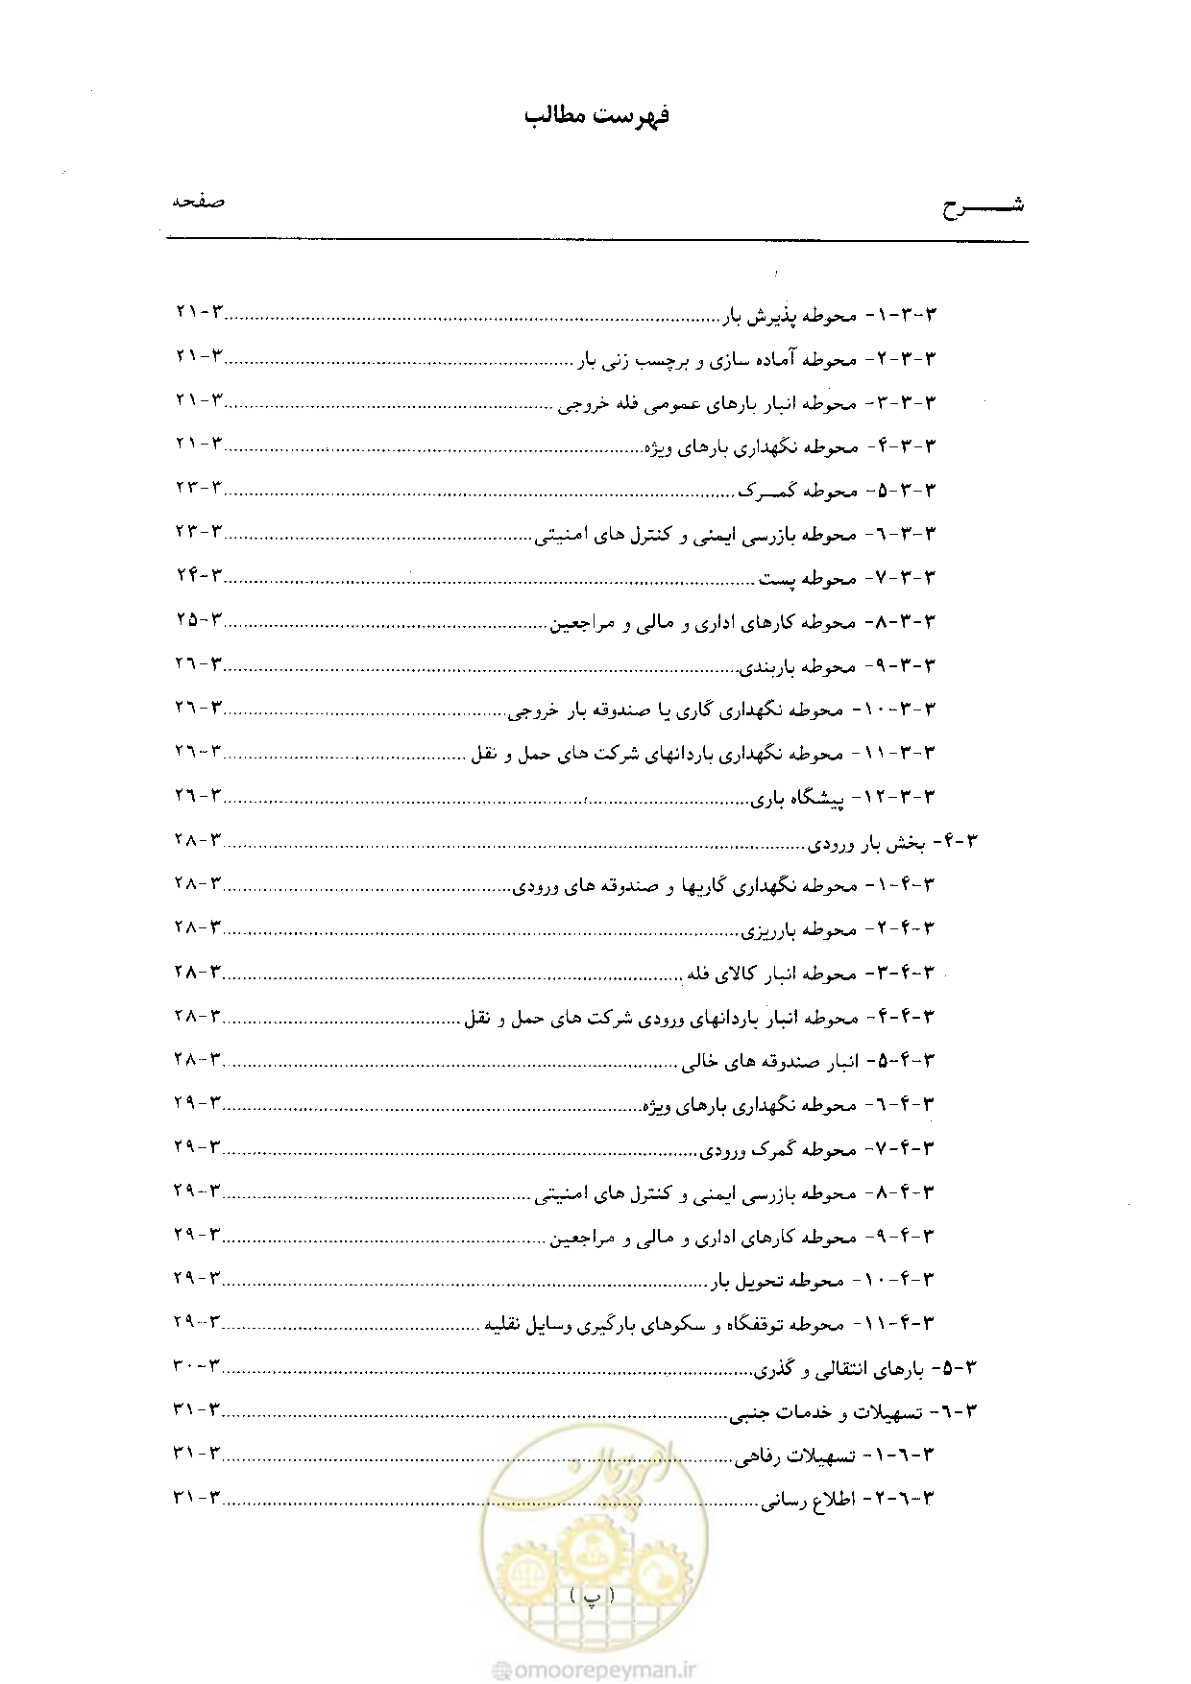 فهرست مطالب
شــــرح صفحه
۳-۳-۱- محوطه پذیرش بار ........ ۳-۲۱
۳-۳-۲- محوطه آماده سازی و برچسب زنی بار ........ ۳-۲۱
۳-۳-۳- محوطه انبار بارهای عمومی فله خروجی ........ ۳-۲۱
۳-۳-۴- محوطه نگهداری بارهای ویژه ........ ۳-۲۱
۳-۳-۵- محوطه گمــرک ........ ۳-۲۳
۳-۳-۶- محوطه بازرسی ایمنی و کنترل های امنیتی ........ ۳-۲۳
۳-۳-۷- محوطه پست ........ ۳-۲۴
۳-۳-۸- محوطه کارهای اداری و مالی و مراجعین ........ ۳-۲۵
۳-۳-۹- محوطه باربندی ........ ۳-۲۶
۳-۳-۱۰- محوطه نگهداری گاری یا صندوقه بار خروجی ........ ۳-۲۶
۳-۳-۱۱- محوطه نگهداری باردانهای شرکت های حمل و نقل ........ ۳-۲۶
۳-۳-۱۲- پیشگاه باری ........ ۳-۲۶
۳-۴- بخش بار ورودی ........ ۳-۲۸
۳-۴-۱- محوطه نگهداری گاریها و صندوقه های ورودی ........ ۳-۲۸
۳-۴-۲- محوطه بارریزی ........ ۳-۲۸
۳-۴-۳- محوطه انبار کالای فله ........ ۳-۲۸
۳-۴-۴- محوطه انبار باردانهای ورودی شرکت های حمل و نقل ........ ۳-۲۸
۳-۴-۵- انبار صندوقه های خالی ........ ۳-۲۸
۳-۴-۶- محوطه نگهداری بارهای ویژه ........ ۳-۲۹
۳-۴-۷- محوطه گمرک ورودی ........ ۳-۲۹
۳-۴-۸- محوطه بازرسی ایمنی و کنترل های امنیتی ........ ۳-۲۹
۳-۴-۹- محوطه کارهای اداری و مالی و مراجعین ........ ۳-۲۹
۳-۴-۱۰- محوطه تحویل بار ........ ۳-۲۹
۳-۴-۱۱- محوطه توقفگاه و سکوهای بارگیری وسایل نقلیه ........ ۳-۲۹
۳-۵- بارهای انتقالی و گذری ........ ۳-۳۰
۳-۶- تسهیلات و خدمات جنبی ........ ۳-۳۱
۳-۶-۱- تسهیلات رفاهی ........ ۳-۳۱
۳-۶-۲- اطلاع رسانی ........ ۳-۳۱
امور پیمان
( پ )
@omoorepeyman.ir